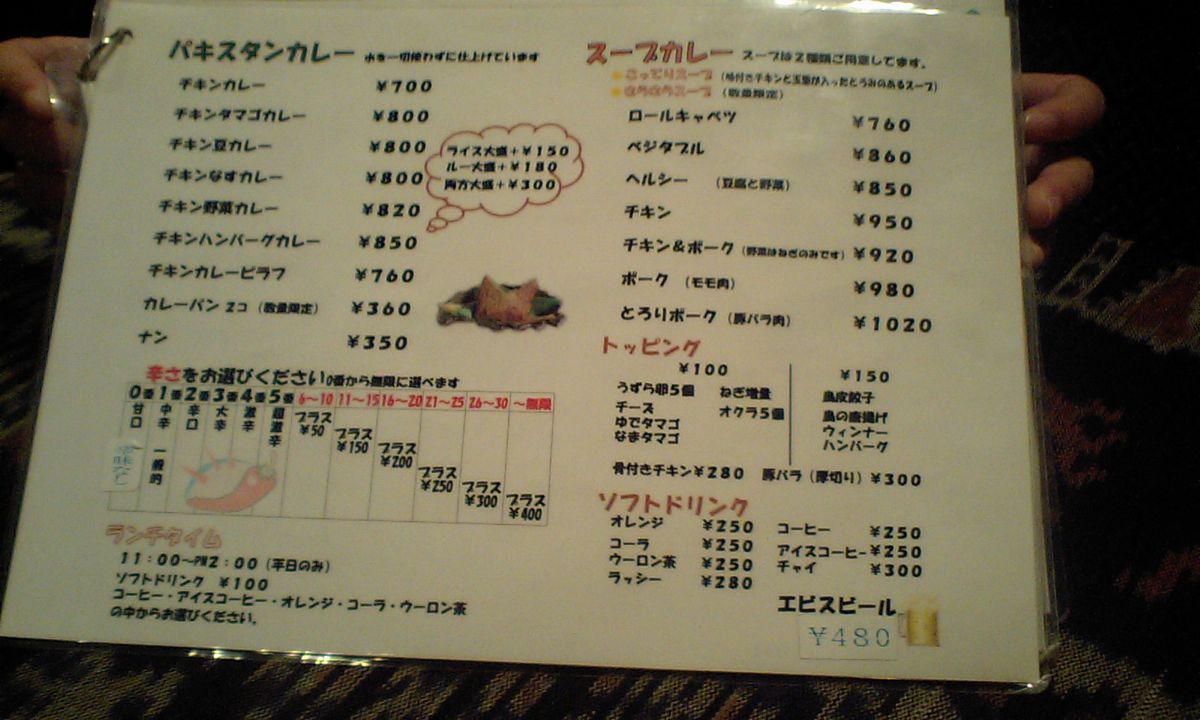 パキスタンカレー 水を一切使わずに仕上げています
チキンカレー ￥700
チキンタマゴカレー ￥800
チキン豆カレー ￥800
チキンなすカレー ￥800
チキン野菜カレー ￥820
チキンハンバーグカレー ￥850
チキンカレーピラフ ￥760
カレーパン 2コ（数量限定） ￥360
ナン ￥350
ライス大盛＋￥150
ルー大盛＋￥180
両方大盛＋￥300
辛さをお選びください0番から無限に選べます
0番 1番 2番 3番 4番 5番 6～10 11～15 16～20 21～25 26～30 ～無限
甘口 中辛 辛口 大辛 激辛 超激辛
一般的
プラス ￥50
プラス ￥150
プラス ￥200
プラス ￥250
プラス ￥300
プラス ￥400
ランチタイム
11：00～PM2：00（平日のみ）
ソフトドリンク ￥100
コーヒー・アイスコーヒー・オレンジ・コーラ・ウーロン茶
の中からお選びください。
スープカレー スープは2種類ご用意してます。
こってりスープ（味付きチキンと玉葱が入ったとろみのあるスープ）
スープ（数量限定）
ロールキャベツ ￥760
ベジタブル ￥860
ヘルシー （豆腐と野菜） ￥850
チキン ￥950
チキン＆ポーク（野菜はねぎのみです） ￥920
ポーク （モモ肉） ￥980
とろりポーク（豚バラ肉） ￥1020
トッピング
￥100
うずら卵5個 ねぎ増量
チーズ オクラ5個
ゆでタマゴ
なまタマゴ
￥150
鳥皮餃子
鳥の唐揚げ
ウィンナー
ハンバーグ
骨付きチキン￥280 豚バラ（厚切り）￥300
ソフトドリンク
オレンジ ￥250 コーヒー ￥250
コーラ ￥250 アイスコーヒー￥250
ウーロン茶 ￥250 チャイ ￥300
ラッシー ￥280
エビスビール
￥480